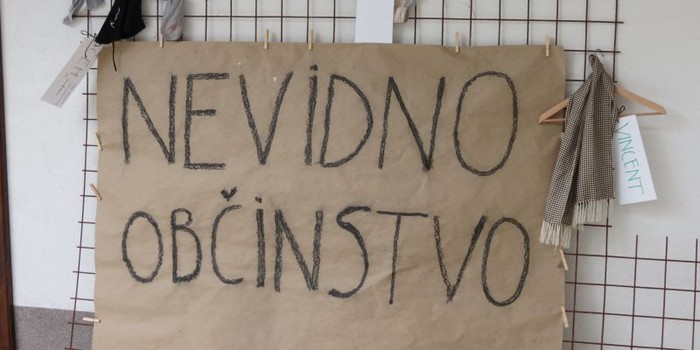 NEVIDNO
OBČINSTVO
VINCENT